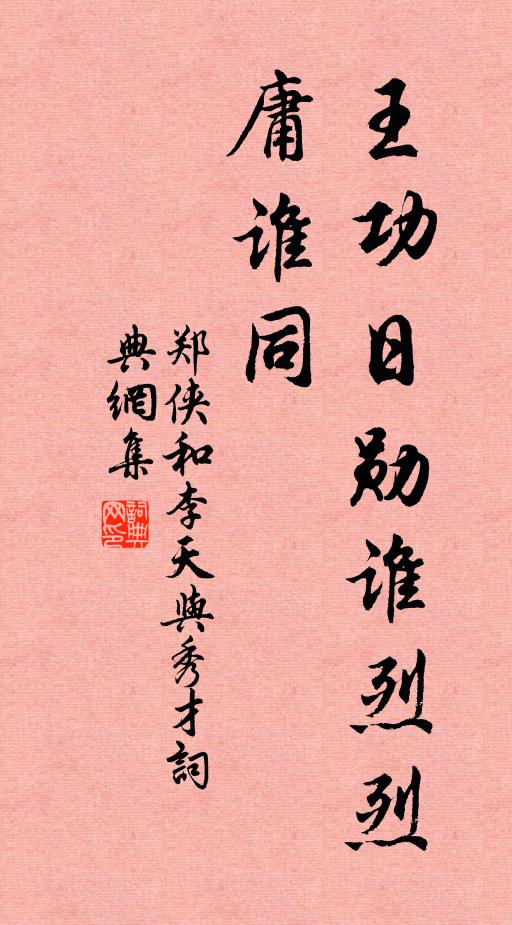 王功日勋谁烈烈
庸谁同
郑侠和李天與秀才詞
典網集
詞典
网印